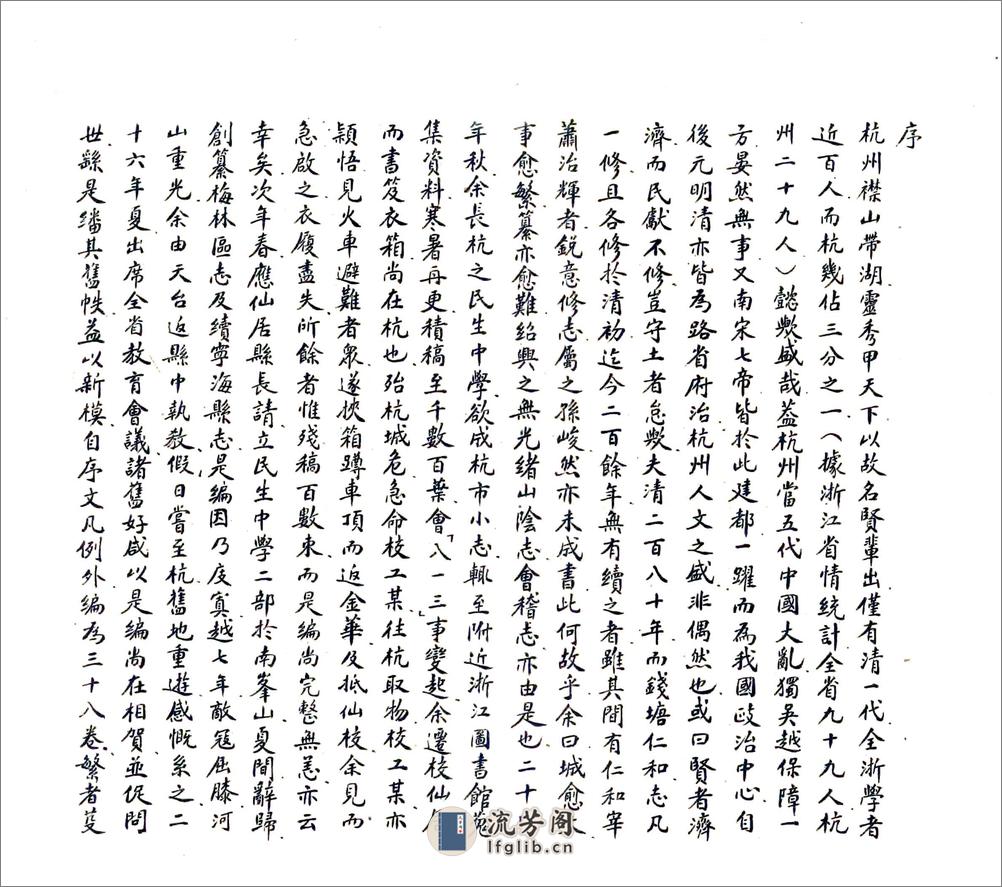 序
杭州襟山帶湖靈秀甲天下以故名賢輩出僅有清一代全浙學者
近百人而杭幾佔三分之一(據浙江省情統計全省九十九人杭
州二十九人)懿歟盛哉蓋杭州當五代中國大亂獨吳越保障一
方晏然無事又南宋七帝皆於此建都一躍而為我國政治中心自
後元明清亦皆為路省府治杭州人文之盛非偶然也或曰賢者濟
濟而民獻不修豈守土者怠歟夫清二百八十年而錢塘仁和志凡
一修且各修於清初迄今二百餘年無有續之者雖其間有仁和宰
蕭治輝者銳意修志屬之孫峻然亦未成書此何故乎余曰城愈大
事愈繁纂亦愈難紹興之無光緒山陰志會稽志亦由是也二十
年秋余長杭之民生中學欲成杭市小志輒至附近浙江圖書館蒐
集資料寒暑再更積稿至千數百葉會「八一三」事變起余遷校仙
而書笈衣箱尚在杭也殆杭城危急命校工某往杭取物校工某亦
穎悟見火車避難者衆遂挾箱蹲車頂而返金華及抵仙校余見而
急啟之衣履盡失所餘者惟殘稿百數束而是編尚完整無恙亦云
幸矣次年春應仙居縣長請立民生中學二部於南峯山夏間辭歸
創纂梅林區志及續寧海縣志是編因乃庋寘越七年敵寇屈膝河
山重光余由天台返縣中執教假日嘗至杭舊地重遊感慨系之二
十六年夏出席全省教育會議諸舊好咸以是編尚在相賀並促問
世繇是繙其舊帙益以新模自序文凡例外編為三十八卷繁者芟
流芳阁
lfglib.cn